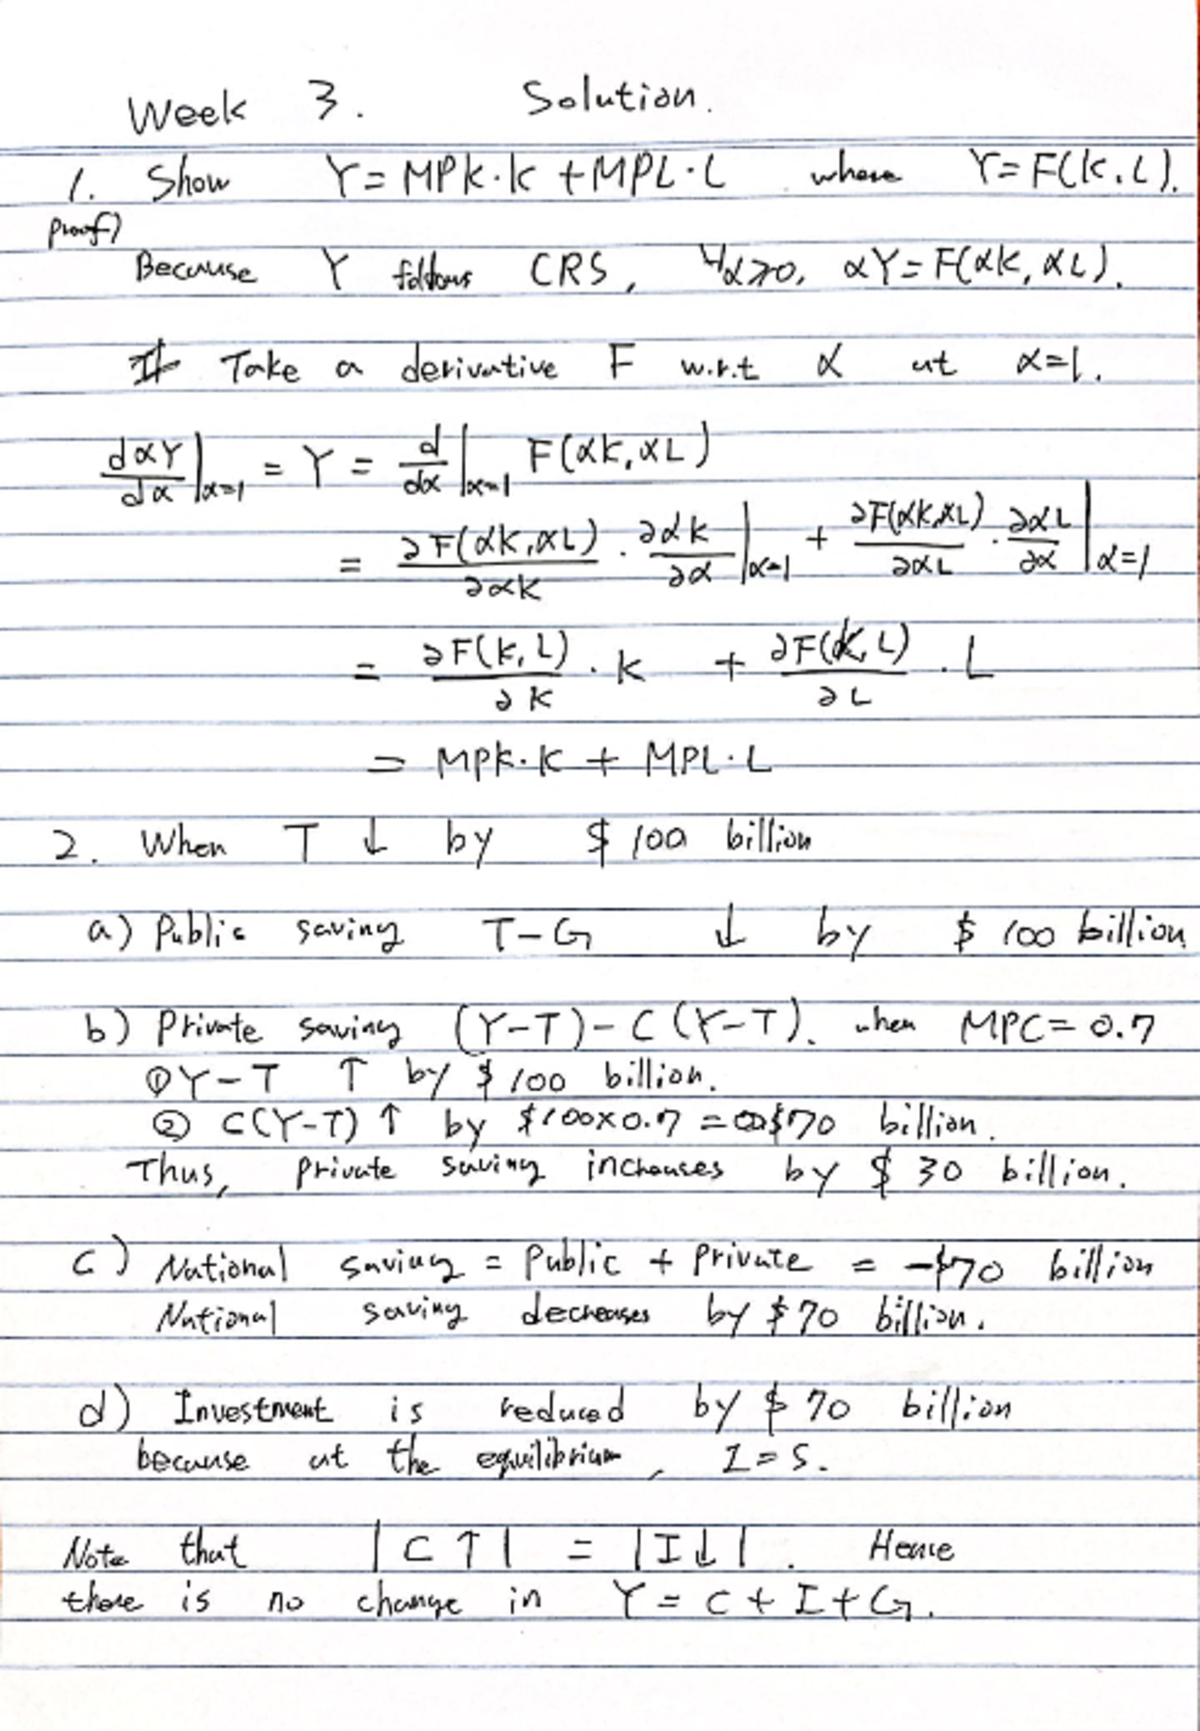 Week 3. Solution.
1. Show Y = MPK·K + MPL·L where Y = F(K, L).
proof)
Because Y follows CRS, ∀α≥0, αY = F(αK, αL).
Take a derivative F w.r.t α at α=1.
dαY/dα |α=1 = Y = d/dα |α=1 F(αK, αL)
= ∂F(αK, αL)/∂αK · ∂αK/∂α |α=1 + ∂F(αK, αL)/∂αL · ∂αL/∂α |α=1
= ∂F(K, L)/∂K · K + ∂F(K, L)/∂L · L
= MPK·K + MPL·L
2. When T ↓ by $ 100 billion
a) Public saving T-G ↓ by $ 100 billion
b) Private saving (Y-T)-C(Y-T). when MPC = 0.7
① Y-T ↑ by $ 100 billion.
② C(Y-T) ↑ by $100×0.7 = $70 billion.
Thus, private saving increases by $ 30 billion.
c) National saving = Public + Private = -$70 billion
National saving decreases by $70 billion.
d) Investment is reduced by $ 70 billion
because at the equilibrium, I = S.
Note that |C↑| = |I↓|. Hence
there is no change in Y = C + I + G.